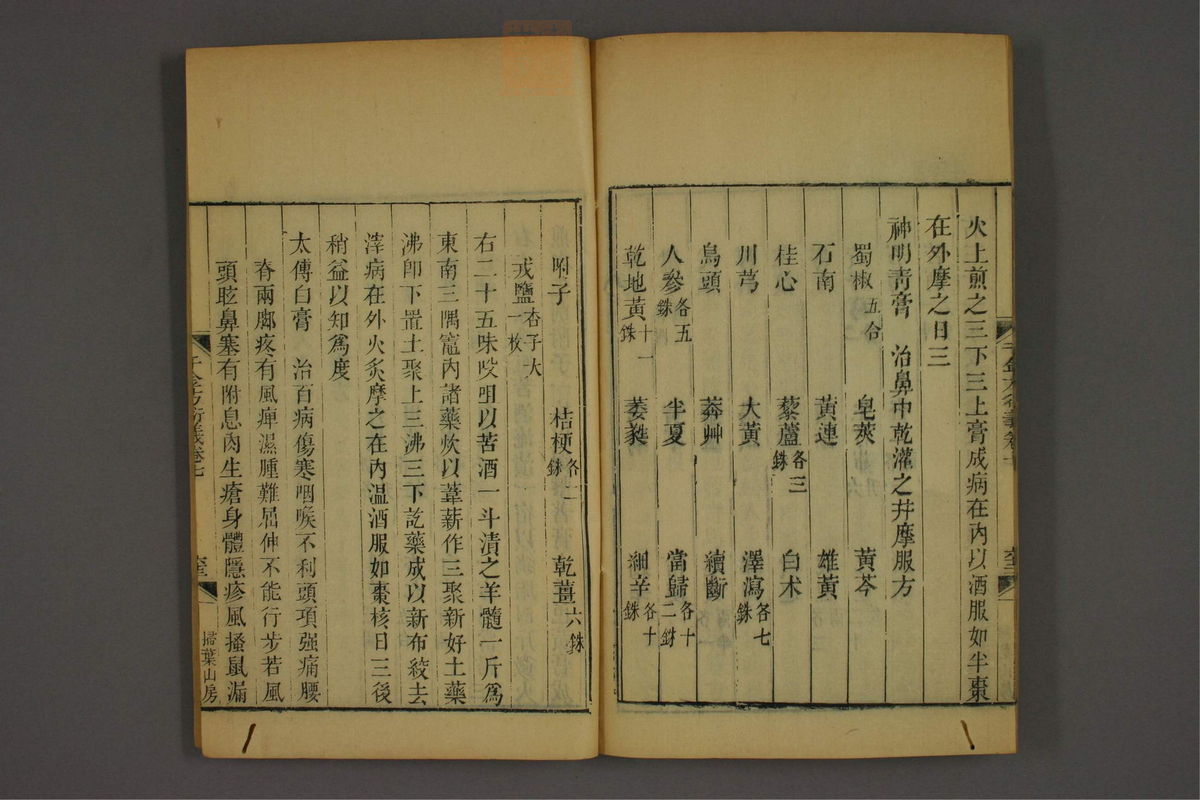 火上煎之三下三上膏成病在內以酒服如半棗
在外摩之日三
神明青膏　治鼻中乾灌之幷摩服方
蜀椒五合　皂莢　黃芩
石南　黃連　雄黃
桂心　藜蘆各三銖　白术
川芎　大黃　澤瀉各七銖
烏頭　莽艸　續斷
人參各五銖　半夏　當歸各十二銖
乾地黃十一銖　萎蕤　細辛各十銖
千金方衍義卷七
附子　桔梗各二銖　乾薑六銖
戎鹽杏子大一枚
右二十五味㕮咀以苦酒一斗漬之羊髓一斤爲
東南三隅竈內諸藥炊以葦薪作三聚新好土藥
沸卽下置土聚上三沸三下訖藥成以新布絞去
滓病在外火炙摩之在內溫酒服如棗核日三後
稍益以知爲度
太傅白膏　治百病傷寒咽喉不利頭項强痛腰
脊兩脚疼有風痺濕腫難屈伸不能行步若風
頭眩鼻塞有附息肉生瘡身體隱疹風搔鼠漏
千金方衍義卷七
掃葉山房